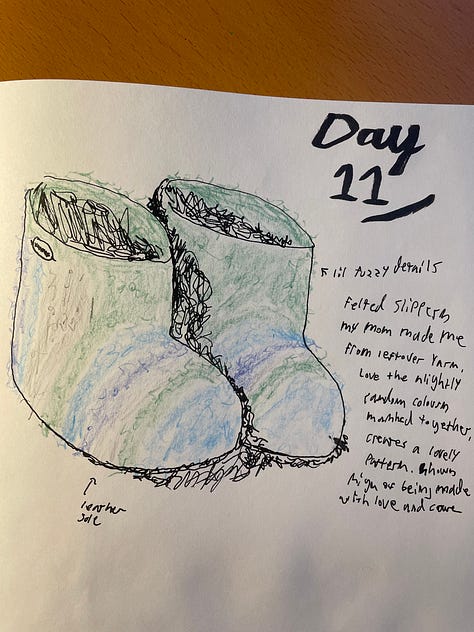 Day
11
lil fuzzy details
Felted slippers
my mom made me
from leftover yarn,
Love the slightly
random colours
mashed together,
creates a lovely
pattern. Shows
sign of being made
with love and care
leather
sole